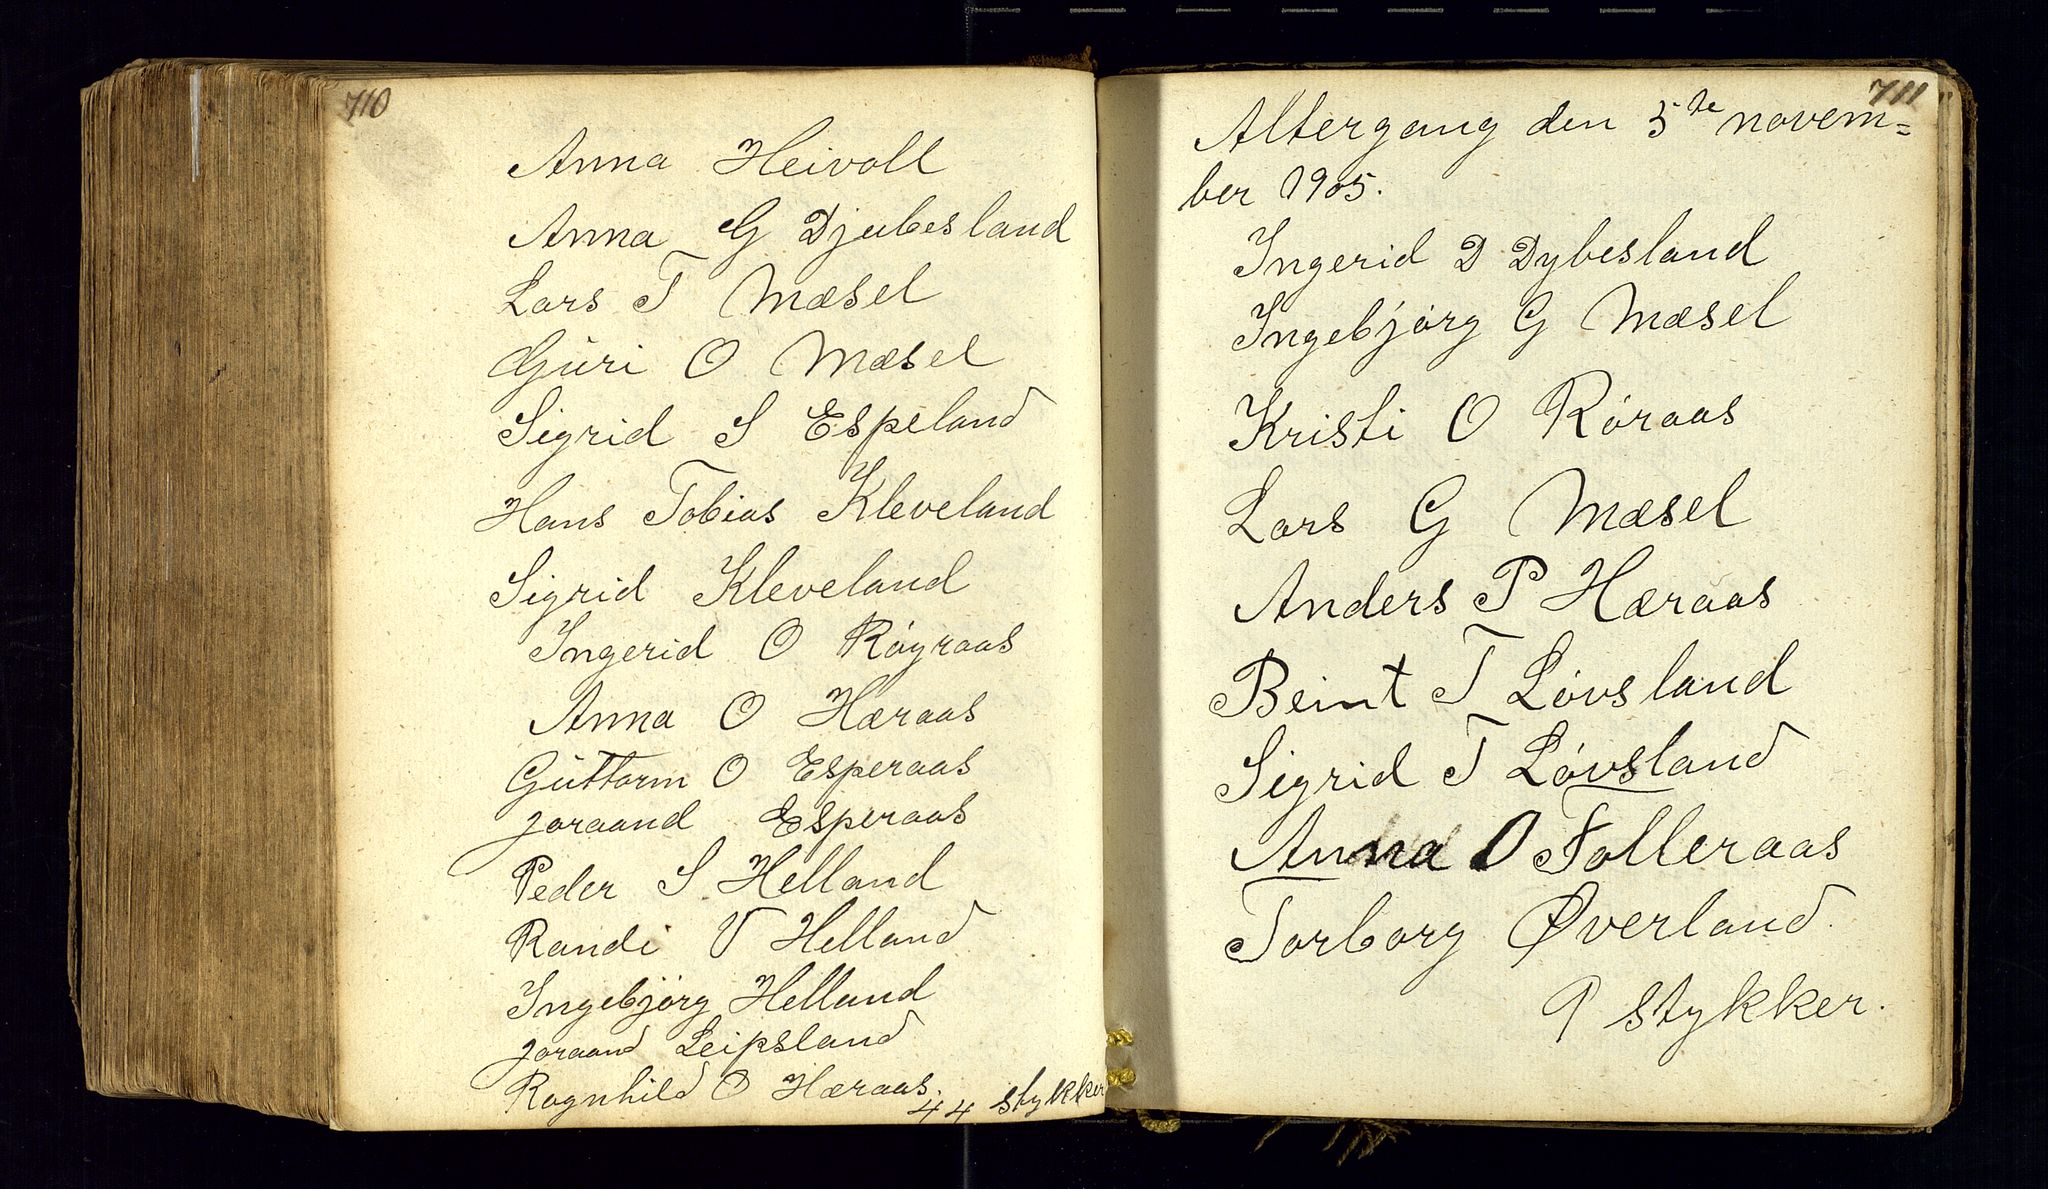 710
Anna Heivoll
Anna G Djubesland
Lars T Mæsel
Guri O Mæsel
Sigrid S Espeland
Hans Tobias Kleveland
Sigrid Kleveland
Ingerid O Røyraas
Anna O Hæraas
Guttorm O Esperaas
Joraand Esperaas
Peder S Helland
Randi V Helland
Ingebjørg Helland
Joraand Leipsland
Ragnhild O Hæraas.
44 stykker
711
Altergang den 5te novem=
ber 1905.
Ingerid D Dybesland
Ingebjørg G Mæsel
Kristi O Røraas
Lars G Mæsel
Anders P Hæraas
Beint T Løvsland
Sigrid T Løvsland
Anna O Folleraas
Torborg Øverland.
9 stykker.